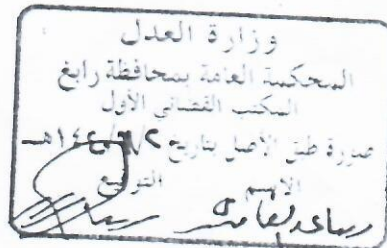 وزارة العدل
المحكمة العامة بمحافظة رابغ
المكتب القضائي الأول
صورة طبق الأصل بتاريخ
الاسم التوقيع